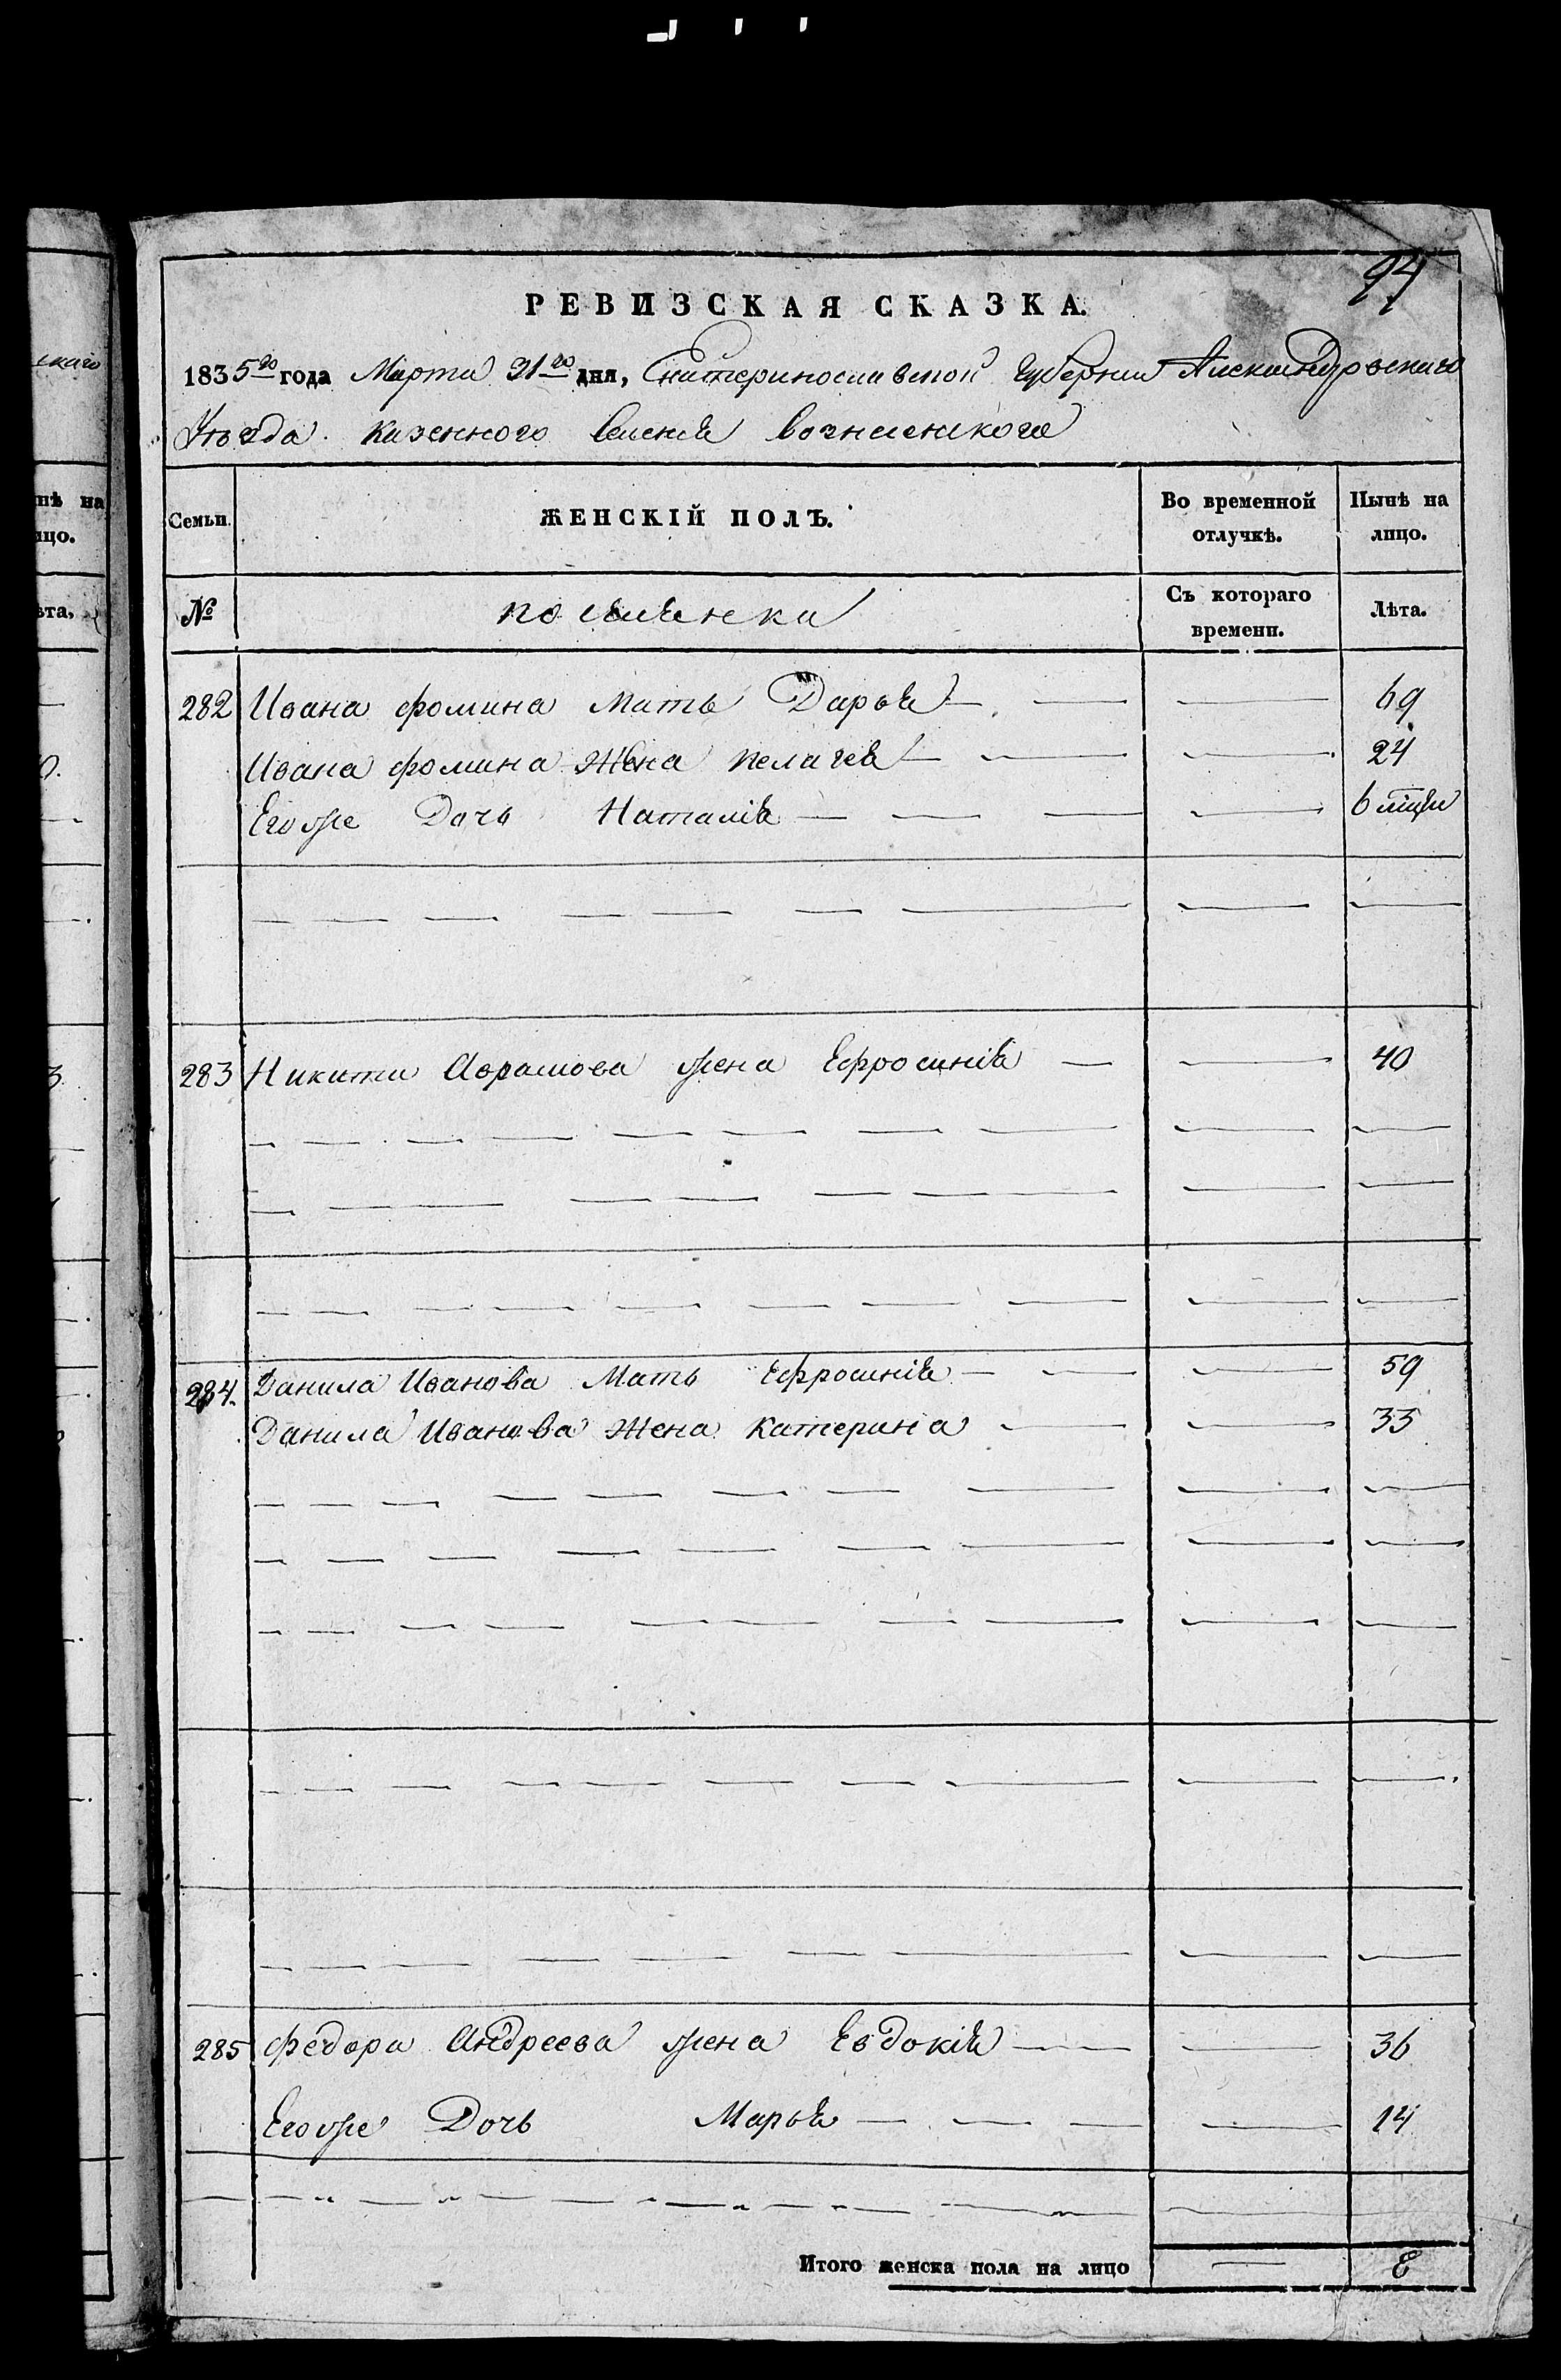 94
РЕВИЗСКАЯ СКАЗКА.
1835го года Марта 31го дня, Екатеринославской Губернии Александровского
Уезда казенного селения вознесенского
Семьи. ЖЕНСКІЙ ПОЛЪ. Во временной отлучкѣ. Нынѣ на лицо.
№ поселенки Съ котораго времени. Лѣта.
282 Ивана фомина Мать Дарья 69
Ивана фомина Жена пелагея 24
Егоже Дочь Наталия 6 мцы
283 Никити Аврамова жена Ефросинія 40
284. Данила Иванова Мать Ефросинія 59
Данила Иванова Жена катерина 33
285 федора Андреева жена Евдокія 36
Егоже Дочь Марья 14
Итого женска пола на лицо 8